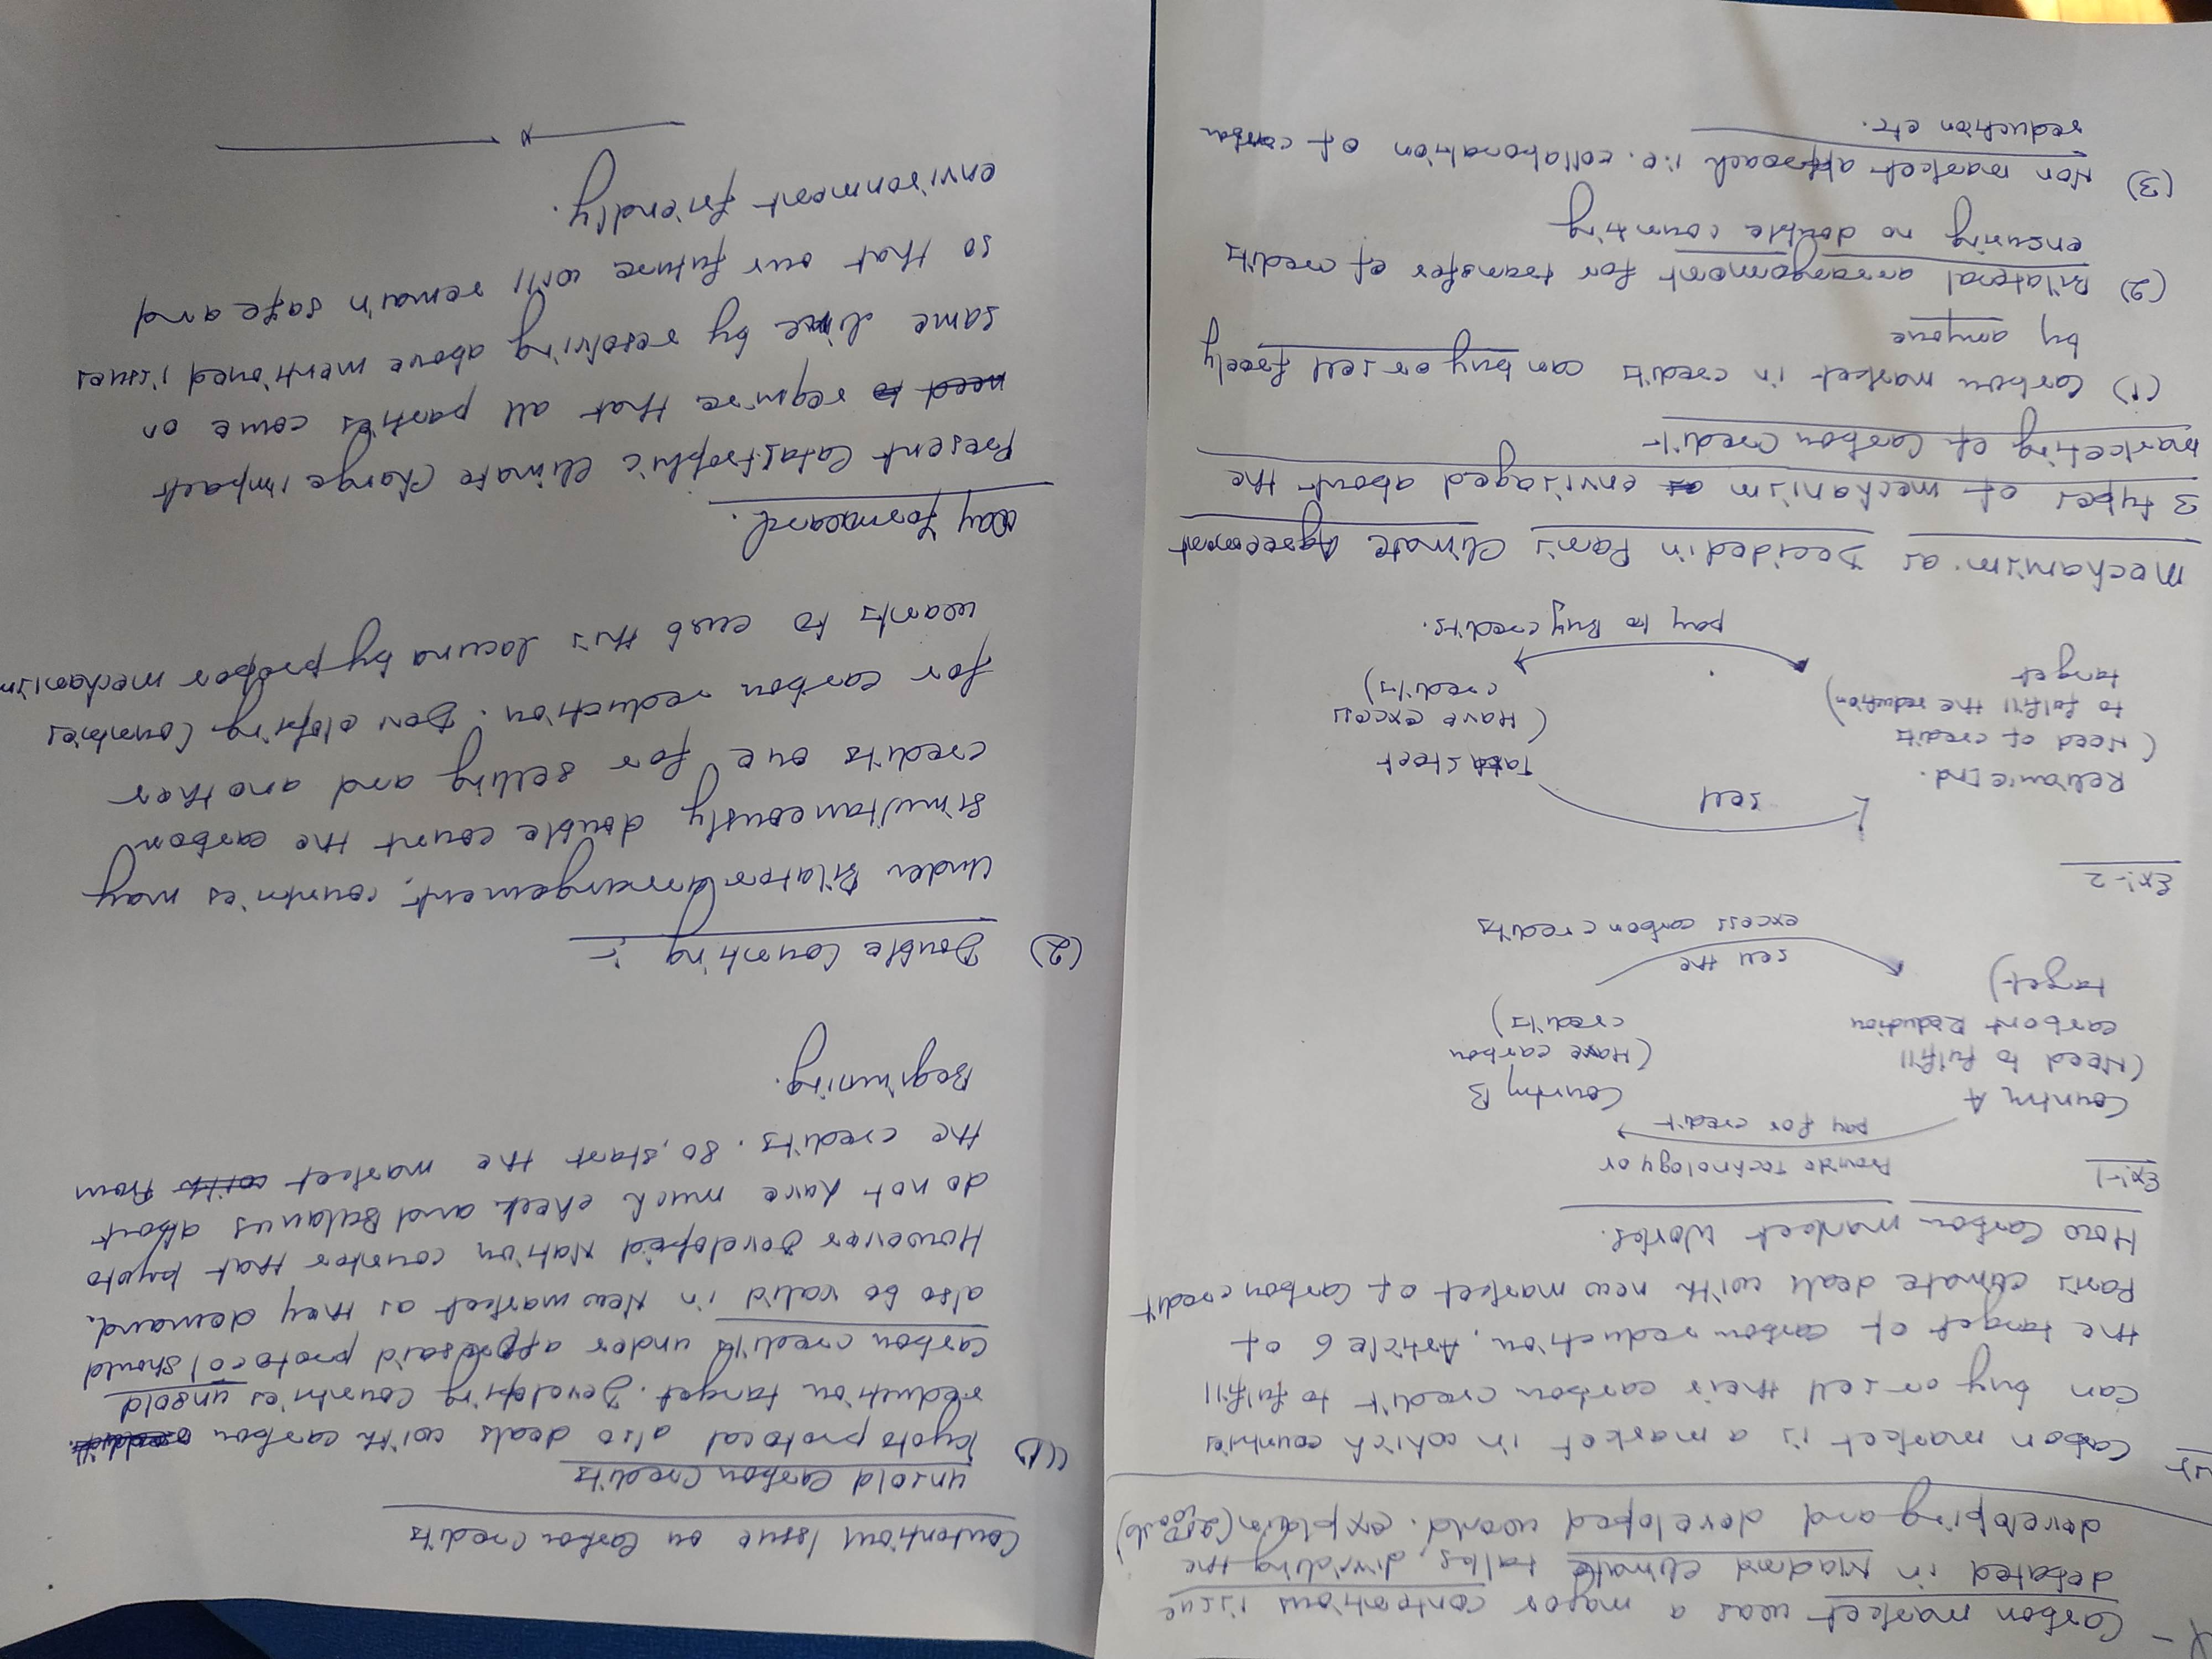 Q- Carbon market was a major contentious issue
debated in Madrid climate talks, dividing the
developing and developed world. explain
Carbon market is a market in which countries
can buy or sell their carbon credit to fulfill
the target of carbon reduction. Article 6 of
Paris climate deals with new market of carbon credit
How Carbon market Works.
Ex:-1
Provide Technology or
pay for credit
Country A
Country B
(Need to fulfill
carbon Reduction
target)
(Have carbon
credits)
sell the
excess carbon credits
Ex:-2
sell
Reliance Ind.
(Need of credits
to fulfill the reduction)
target
Tata steel
(Have excess
credits)
pay to Buy credits.
Mechanism as Decided in Paris Climate Agreement
3 types of mechanism as envisaged about the
marketing of Carbon Credit-
(1) Carbon market in credits can buy or sell freely
by anyone
(2) Bilateral arrangement for transfer of credits
ensuring no double counting
(3) Non market approach i.e. collaboration of carbon
reduction etc.
Contentious Issue on Carbon Credits
(1) unsold Carbon Credits
kyoto protocal also deals with carbon credits.
reduction target. Developing Countries unsold
carbon credits under apporesaid protocol should
also be valid in New market as they demand.
However Developed Nation counter that kyoto
do not have much check and Balanes about
the credits. So, start the market with from
Beginning.
(2) Double Counting :-
Under Bilateral arrangement, countries may
simultaneously double count the carbon
credits one for selling and another
for carbon reduction. Developing Countries
wants to curb this lacuna by propor mechanism
Way forward.
Present Catastrophic Climate Change impact
need to require that all parties come on
same line by resolving above mentioned issues
so that our future will remain safe and
environment friendly.
x